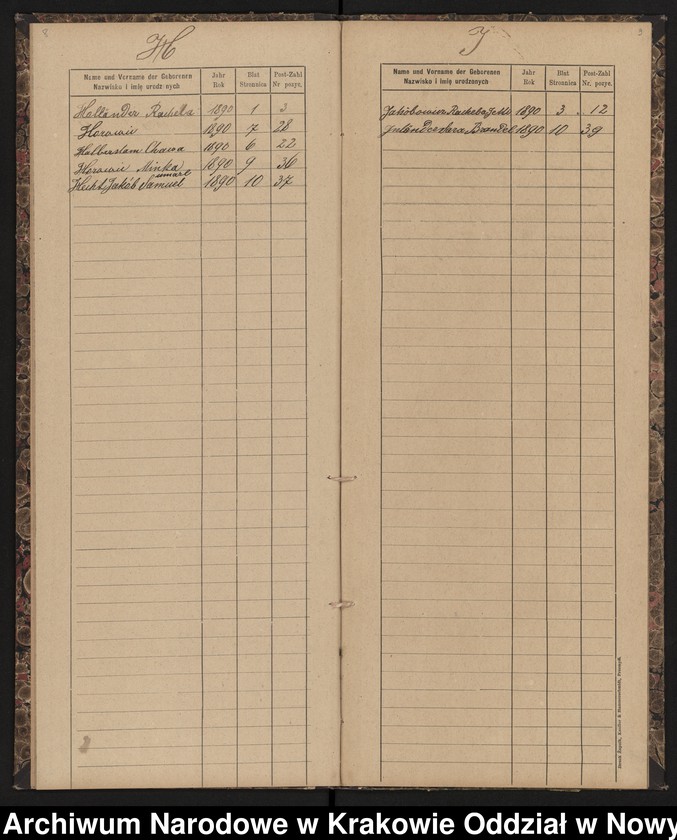 8
H
Name und Vorname der Geborenen
Nazwisko i imię urodzonych
Jahr
Rok
Blat
Stronnica
Post-Zahl
Nr pozyc.
Holländer Rachela 1890 1 3
Horowic 1890 7 28
Halberstam Chawa 1890 6 22
Horowic Minka 1890 9 36
umarł
Hecht Jakób Samuel 1890 10 37
J
Name und Vorname der Geborenen
Nazwisko i imię urodzonych
Jahr
Rok
Blat
Stronnica
Post-Zahl
Nr. pozyc.
Jakóbowicz Rachela Jette 1890 3 12
Inländer Sara Brandel 1890 10 39
Archiwum Narodowe w Krakowie Oddział w Nowy